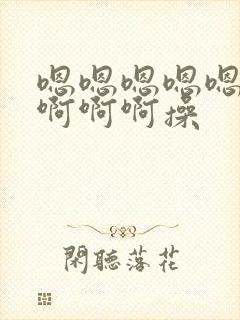 嗯嗯嗯嗯嗯
啊啊啊操
閑聽落花